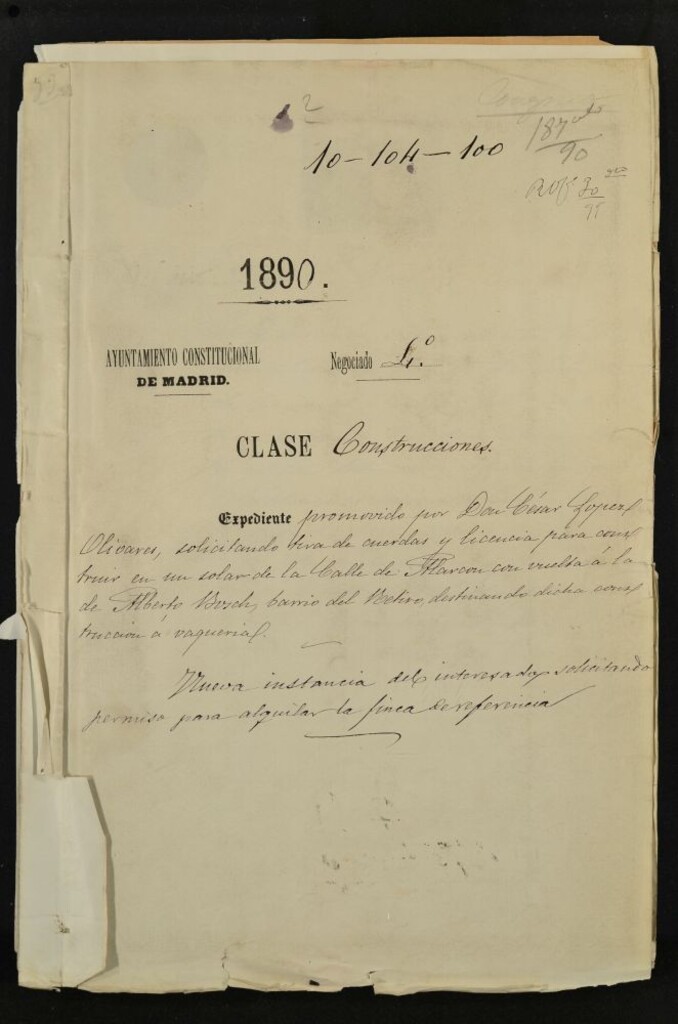 2
10-104-100
187
90
20
1890.
AYUNTAMIENTO CONSTITUCIONAL
DE MADRID.
Negociado 4.º
CLASE Construcciones.
Expediente promovido por Don César Lopez
Olivares, solicitando tira de cuerdas y licencia para cons
truir en un solar de la Calle de Alarcon con vuelta á la
de Alberto Bosch, barrio del Retiro, destinando dicha cons
truccion á vaqueria.
Nueva instancia del interesado solicitando
permiso para alquilar la finca de referencia